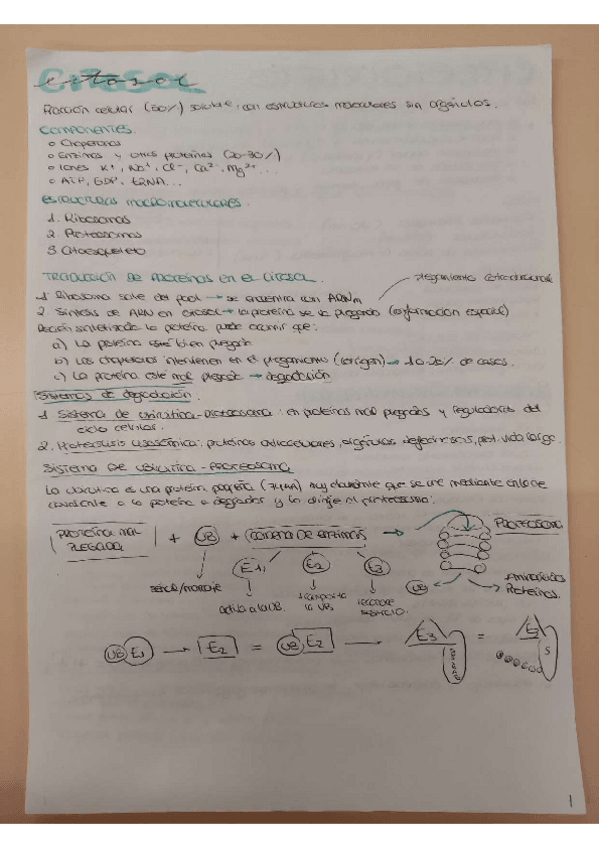 Citosol
Fracción celular (50%) soluble, con estructuras moleculares sin orgánulos.
COMPONENTES.
o Chaperonas
o Enzimas y otras proteínas (20-30%)
o Iones K+, Na+, Cl-, Ca2+, Mg2+...
o ATP, GDP, tRNA...
ESTRUCTURAS MACROMOLECULARES.
1. Ribosomas
2. Proteosomas
3. Citoesqueleto
TRADUCCIÓN DE PROTEÍNAS EN EL CITOSOL.
plegamiento cotraduccional
1. Ribosoma sale del pool → se encuentra con ARNm
2. Síntesis de ARN en citosol → la proteína se va plegando (conformación espacial)
sintetizada la proteína puede ocurrir que:
a) La proteína esté bien plegada
b) Las chaperonas intervienen en el plegamiento → 10-20% de casos.
c) La proteína esté mal plegada → degradación
Sistemas de degradación.
1. Sistema de ubicuitina-proteosoma: en proteínas mal plegadas y reguladoras del
ciclo celular.
2. Proteolisis lisosómica: proteínas extracelulares, orgánulos, prot. vida larga.
SISTEMA DE UBICUITINA-PROTEOSOMA
La ubicuitina es una proteína pequeña que se une mediante enlace
covalente a la proteína a degradar y la dirige al proteosoma.
PROTEÍNA MAL PLEGADA + UB + CADENA DE ENZIMAS → PROTEOSOMA
E1 E2 E3 UB Aminoácidos
Proteínas.
activa a la UB. transporta la UB reconoce
UB E1 → E2 = UB E2 → E3 = E3
S
1